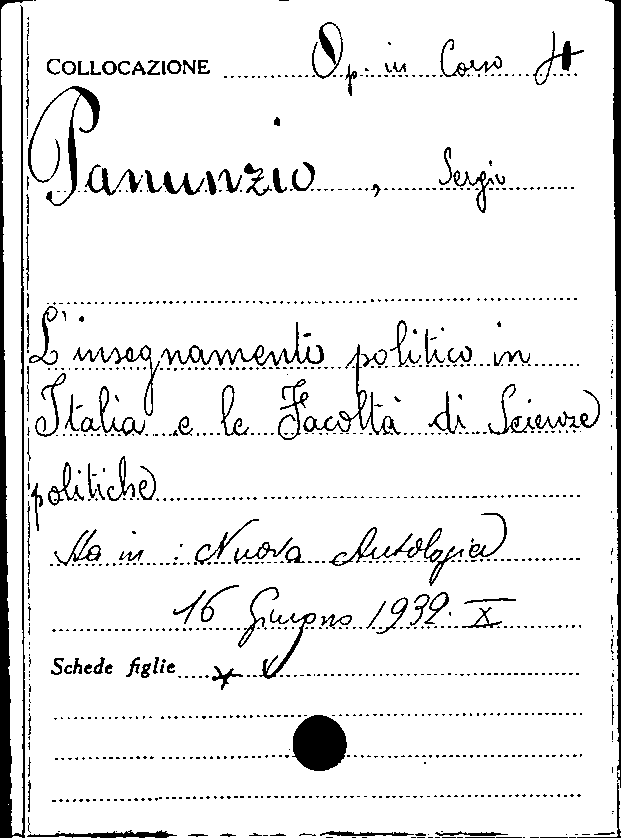 COLLOCAZIONE Op. in Corso
Panunzio, Sergio
L'insegnamento politico in
Italia e le Facoltà di Scienze
politiche
Sta in : Nuova Antologia
16 Giugno 1932. X
Schede figlie